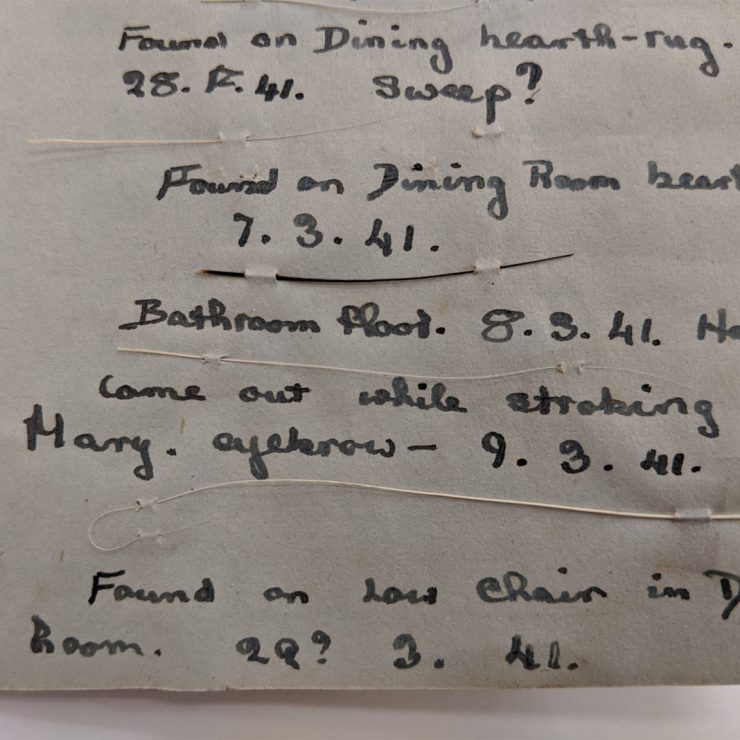 Found on Dining hearth-rug.
28. 41. Sweep?
Found on Dining Room heart
7. 3. 41.
Bathroom floor. 8. 3. 41. Ha
Came out while stroking
Mary. eyebrow - 9. 3. 41.
Found on Low Chair in D
Room. 29? 3. 41.